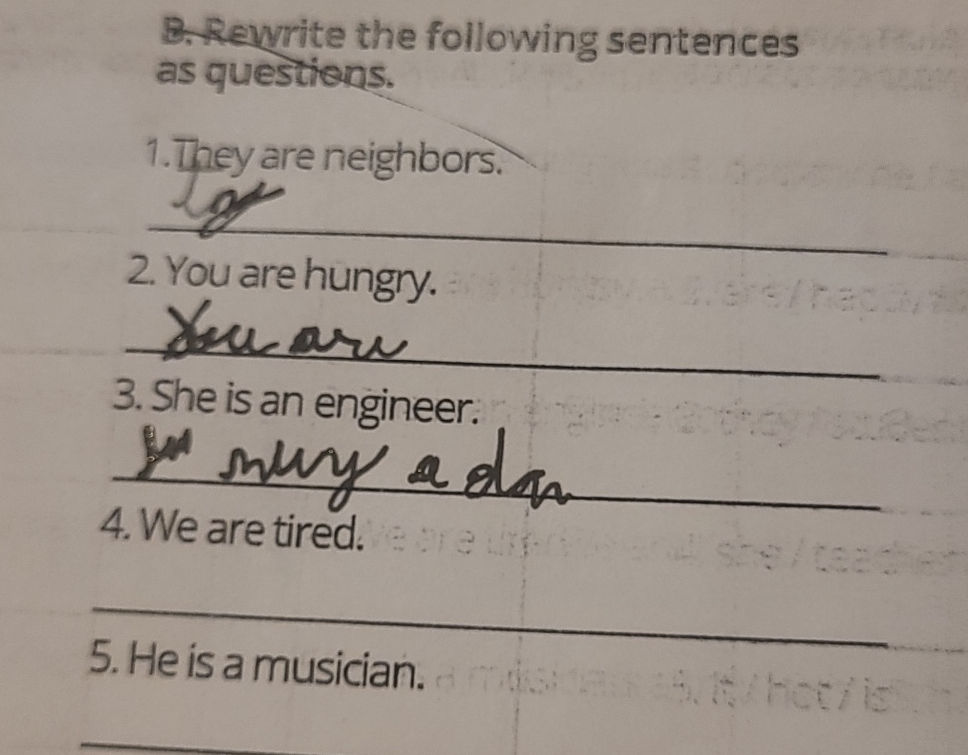 B. Rewrite the following sentences
as questions.
1.They are neighbors.
2. You are hungry.
You are
3. She is an engineer.
a
4. We are tired.
5. He is a musician.